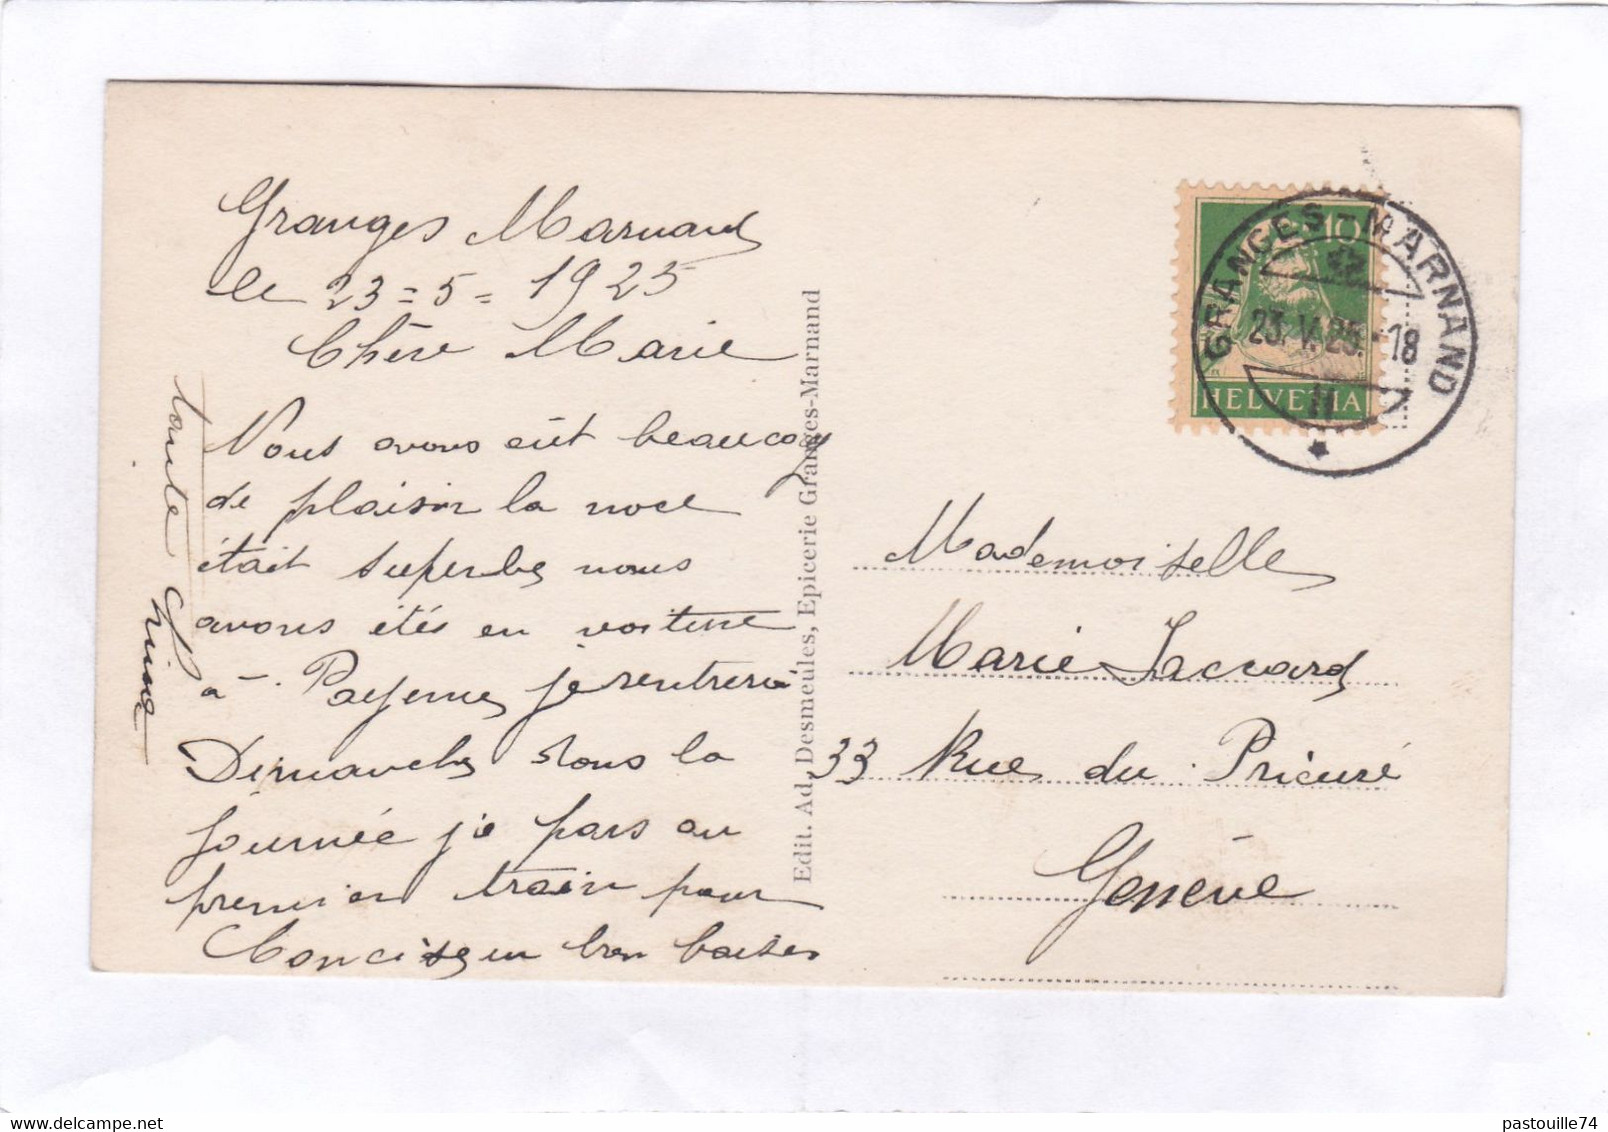 Granges Marnand
le 23=5=1925
Chère Marie
Nous avons eût beaucoup
de plaisir la noce
était superbe nous
avons étés en voiture
à Payerne je rentrerai
Dimanche dans la
journée je pars au
premier train pour
Concise un bon baiser
tante
Edit. Ad. Desmeules, Epicerie Granges-Marnand
10
HELVETIA
GRANGES-MARNAND
23.V.25.-18
Mademoiselle
Marie Jaccard
33 Rue du Prieuré
Genève
pastouille74